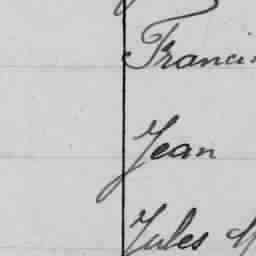 Franci
Jean
Jules M